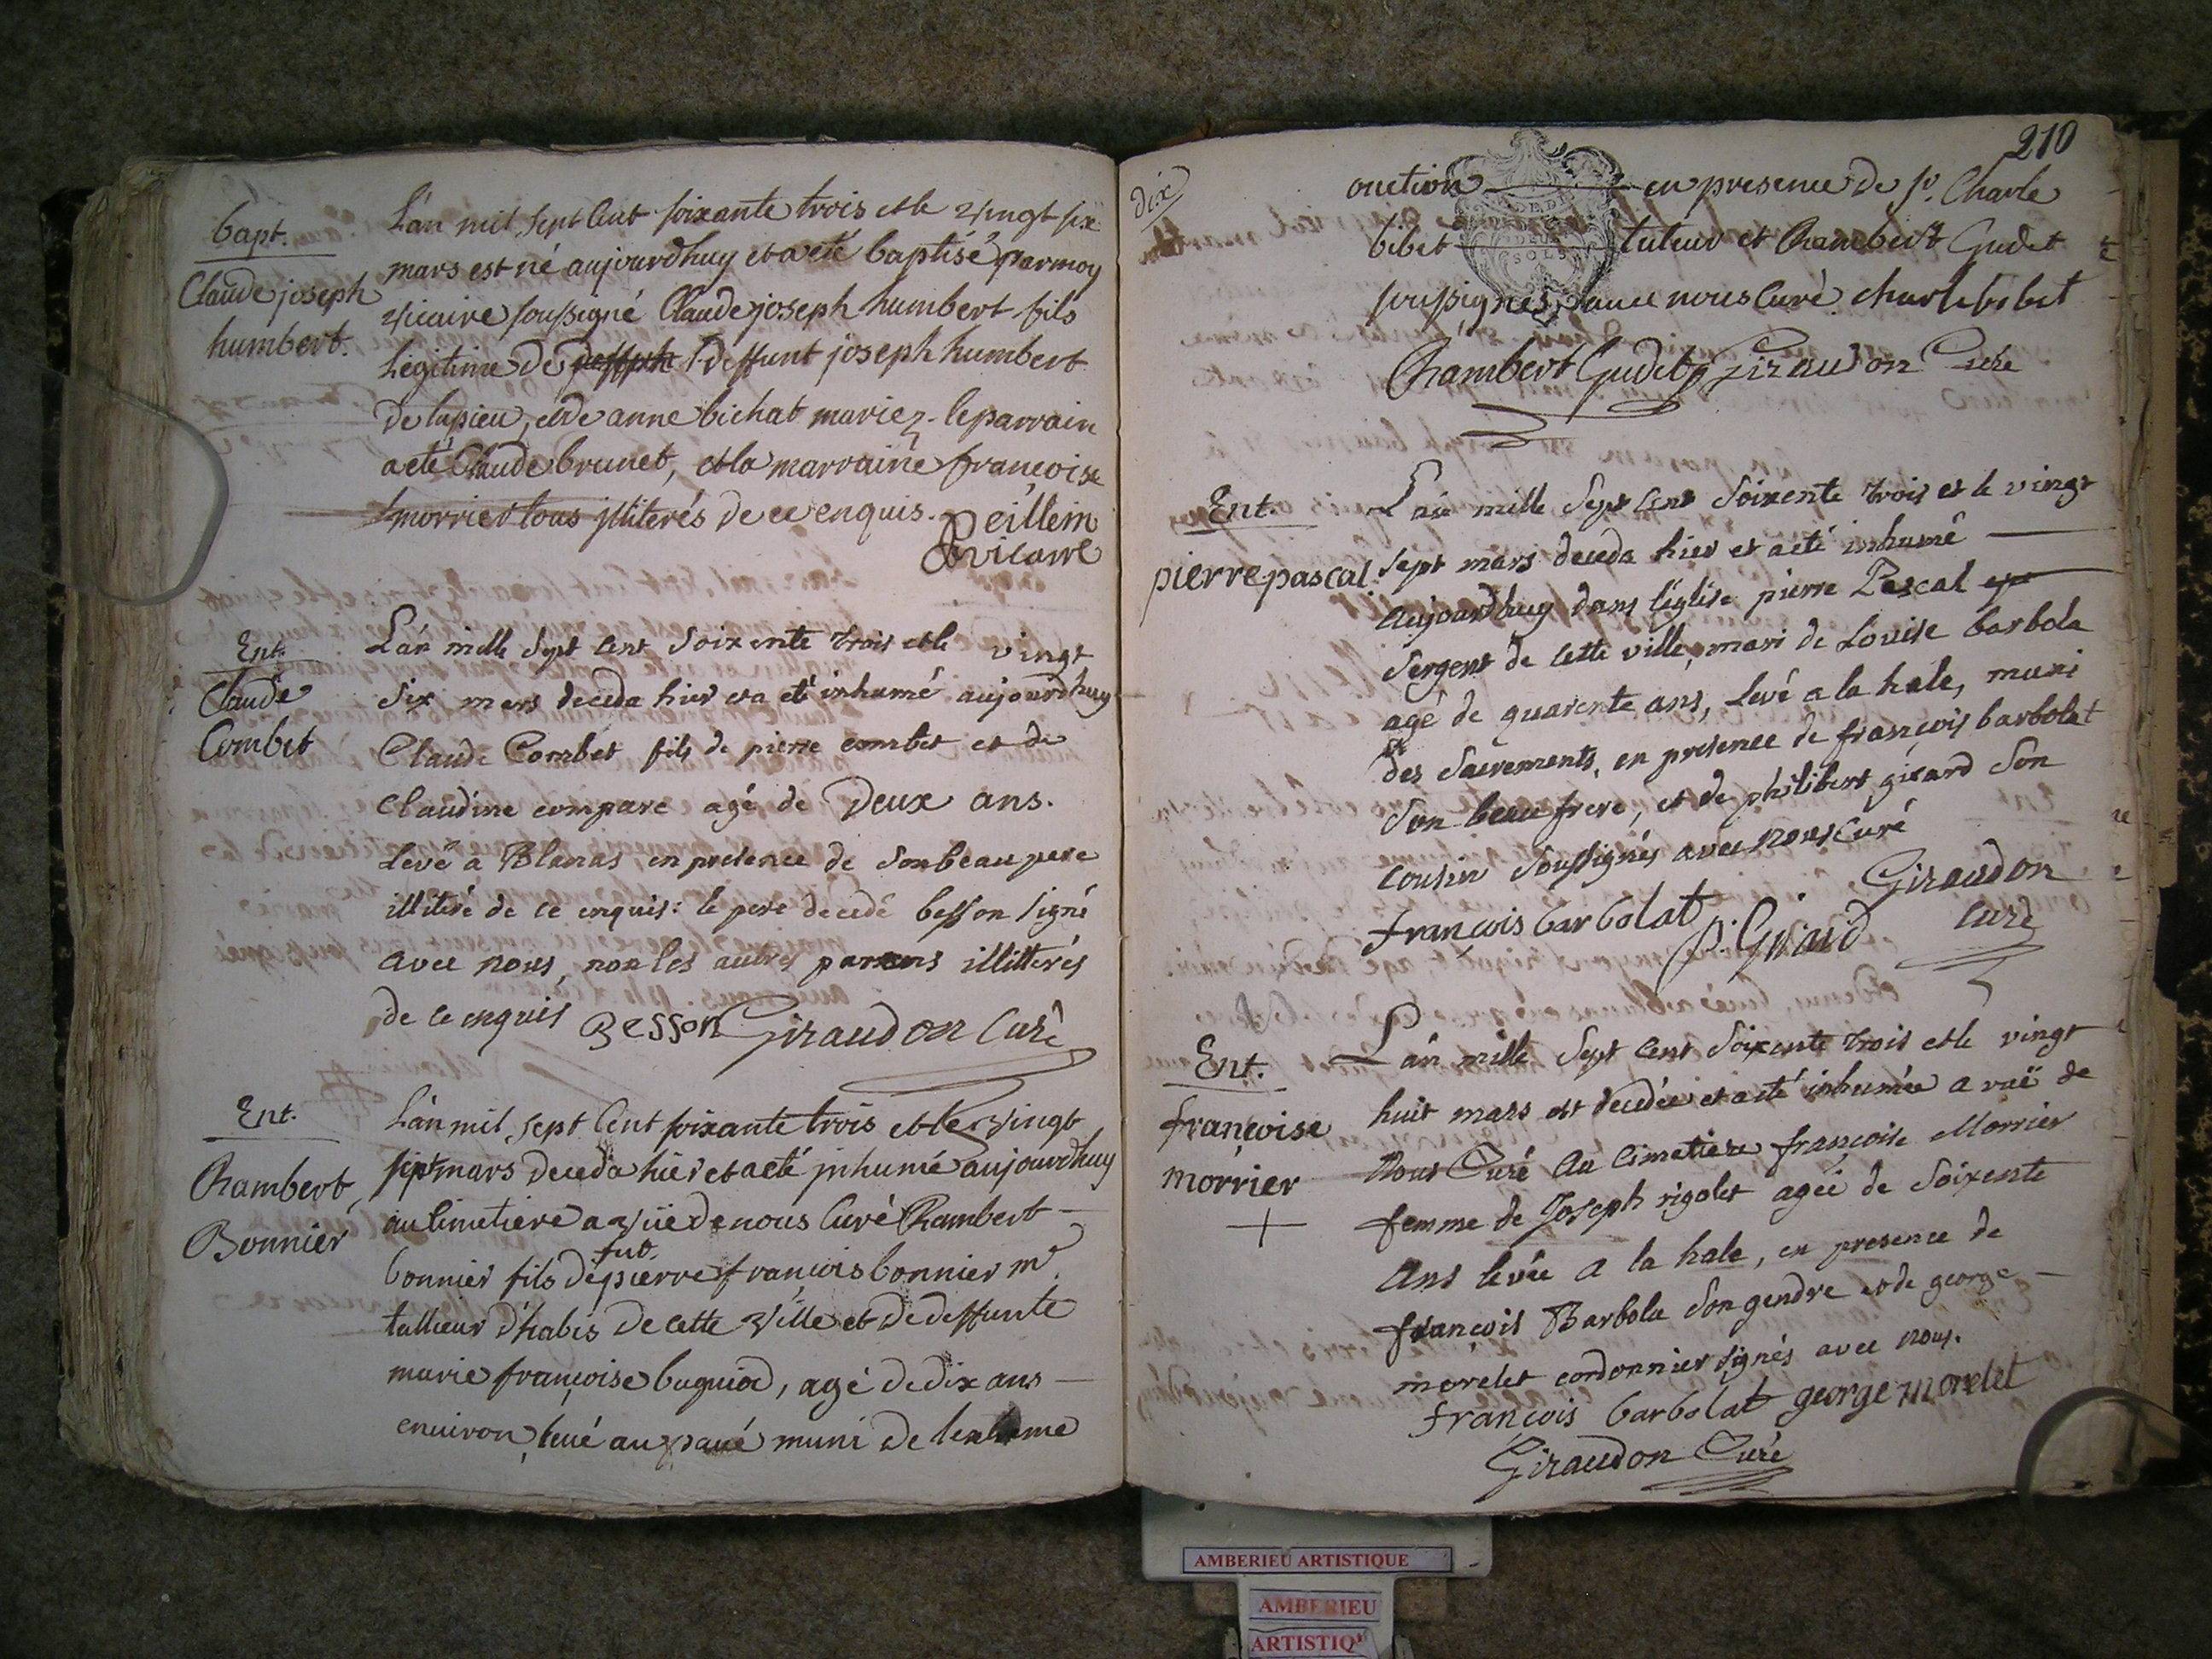 bapt.
Claude joseph
humbert.
L'an mil sept Cent soixante trois et le vingt six
mars est né aujourdhuy et a eté baptisé par moy
vicaire soussigné Claude joseph humbert fils
légitime de deffunt joseph humbert
de lupieu, et de anne bichat mariez. le parrain
a eté Claude brunet, et la marraine françoise
morrier tous jlliterés de ce enquis. Peillein
vicaire
Ent.
Claude
Combet
L'an mille Sept Cent Soixente trois et le vingt
Six mars deceda hier et a eté inhumé aujourdhuy
Claude Combet fils de pierre combet et de
Claudine compare agé de Deux ans.
Levé a Blanas, en presence de Son beau pere
illiteré de ce enquis: le pere decedé besson signé
avec nous, non les autres parens illitterés
de ce enquis Besson Giraudon Curé
Ent.
Rambert
Bonnier
L'an mil sept Cent soixante trois et le vingt
sept mars deceda hier et a eté jnhumé aujourdhuy
au Cimetiere a vüe de nous Curé Rambert
bonnier fils de fut pierre françois bonnier me.
tallieur d'habis de cette ville et de deffunte
marie françoise buguiod, agé de dix ans
environ, levé au pavé muni de lextreme
210
dix
onction en presence de sr. Charle
bibet tuteur et Rambert Gudet
soussignés avec nous Curé. charle bibet
Rambert Gudet Giraudon Curé
Ent.
pierre pascal.
L'an mille Sept Cent Soixente trois et le vingt
Sept mars deceda hier et a eté inhumé
aujourdhuy dans l'église pierre Pascal
Sergent de cette ville, mari de Louise barbola
agé de quarente ans, Levé a la hale, muni
des Sacrements, en presence de françois barbolat
Son beau frere, et de philibert girard Son
cousin Soussignés avec nous Curé
françois barbolat p. Girard Giraudon
Curé
Ent.
françoise
morrier
L'an mille Sept Cent Soixente trois et le vingt
huit mars est decedée et a eté inhumée a vuë de
Nous Curé au Cimetiere françoise Morrier
femme de Joseph rigolet agée de Soixente
Ans levée a la hale, en presence de
françois Barbola Son gendre et de george
morelet cordonnier signés avec nous.
françois barbolat george morelet
Giraudon Curé
AMBERIEU ARTISTIQUE
AMBERIEU
ARTISTIQ